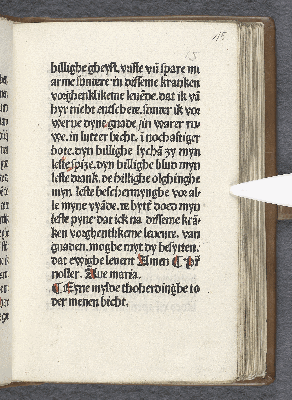 15
15
billighe gheyst. vaste vñ spare mi
arme sundere in disseme kranken
vorghenkliteme leuēde. dat ik vā
hyr nicht entschede. sunder ik vor
werue dyne gnade. in warer ru
we. in lutter bicht. i nochaftiger
bote. dyn billighe lychā zy myn
leste spize. dyn billighe blud myn
leste drank. de billighe olghinghe
myn leste beschermynghe vor al
le myne vyāde. de bytt doed myn
leste pyne dat ick na disseme krā
ken vorghentlikeme leuende. van
gnaden. moghe myt dy besytten.
dat ewighe leuent Amen ¶ Pr̄
noster. Aue maria.
¶ Eyne mylde thoherdinghe to
der menen bicht.